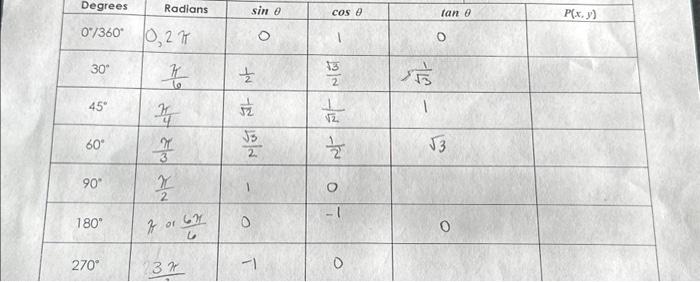 Degrees Radians sin θ cos θ tan θ P(x, y)
0°/360° 0, 2π 0 1 0
30° π/6 1/2 √3/2 1/√3
45° π/4 1/√2 1/√2 1
60° π/3 √3/2 1/2 √3
90° π/2 1 0
180° π or 6π/6 0 -1 0
270° 3π -1 0